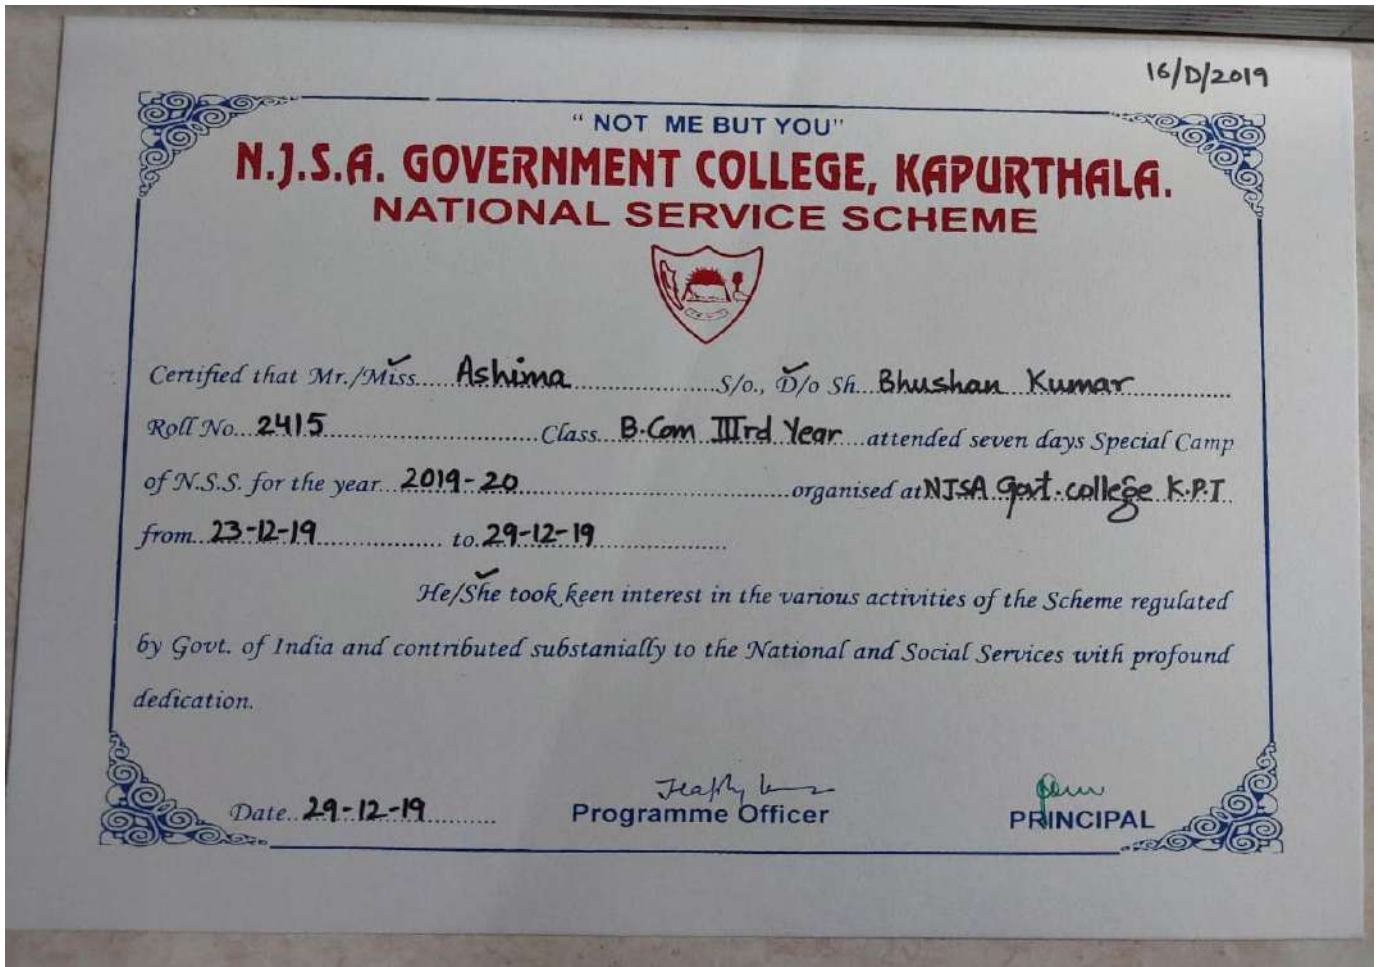 16/D/2019
“ NOT ME BUT YOU”
N.J.S.A. GOVERNMENT COLLEGE, KAPURTHALA.
NATIONAL SERVICE SCHEME
Certified that Mr./Miss.....Ashima....................S/o., D/o Sh...Bhushan Kumar..............
Roll No...2415..............................Class...B.Com IIIrd Year....attended seven days Special Camp
of N.S.S. for the year...2019-20......................................organised at NJSA Govt. college K.P.T
from...23-12-19..................to..29-12-19..................
He/She took keen interest in the various activities of the Scheme regulated
by Govt. of India and contributed substanially to the National and Social Services with profound
dedication.
Date..29-12-19..........
Programme Officer
PRINCIPAL